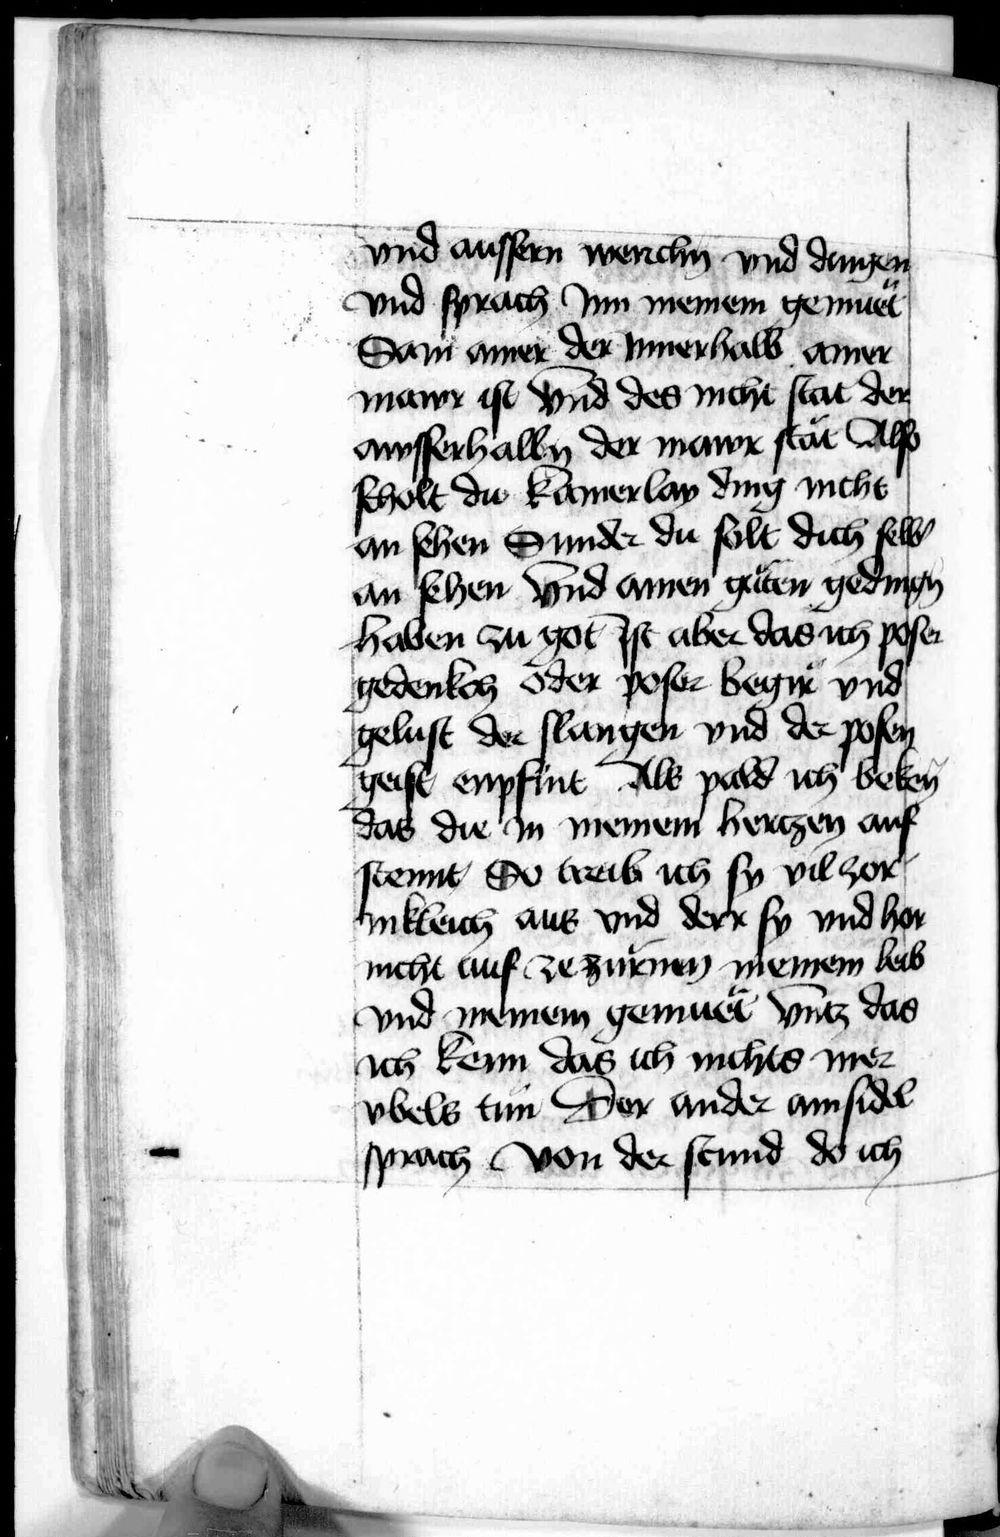 vnd aussern werchn vnd dingen
vnd sprach Inn meinem gemuet
Sam ainer der Innerhalb ainer
mawr ist Vnd des nicht stat der
awsserhallbn der mawr stät Also
scholt du kainerlay ding nicht
an sehen Sunder du solt dich selb
an sehen Vnd ainen güten gedingn
haben zu got Ist aber das ich poser
gedenkch oder poser begir vnd
gelust der slangen vnd der posen
geist enpfint Als pald ich beken
das die in meinem hertzen auf
stennt So treib ich sy vil zor
inkleich aus vnd derr sy vnd hor
nicht auf ze zürnen meinem leib
vnd meinem gemuet Vntz das
ich kenn das ich nichts mer
vbels tun Der ander ainsidel
sprach Von der stund do ich